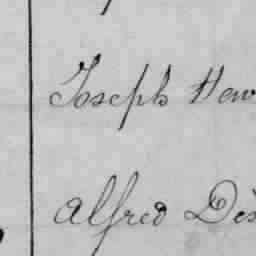 Joseph How
Alfred Des